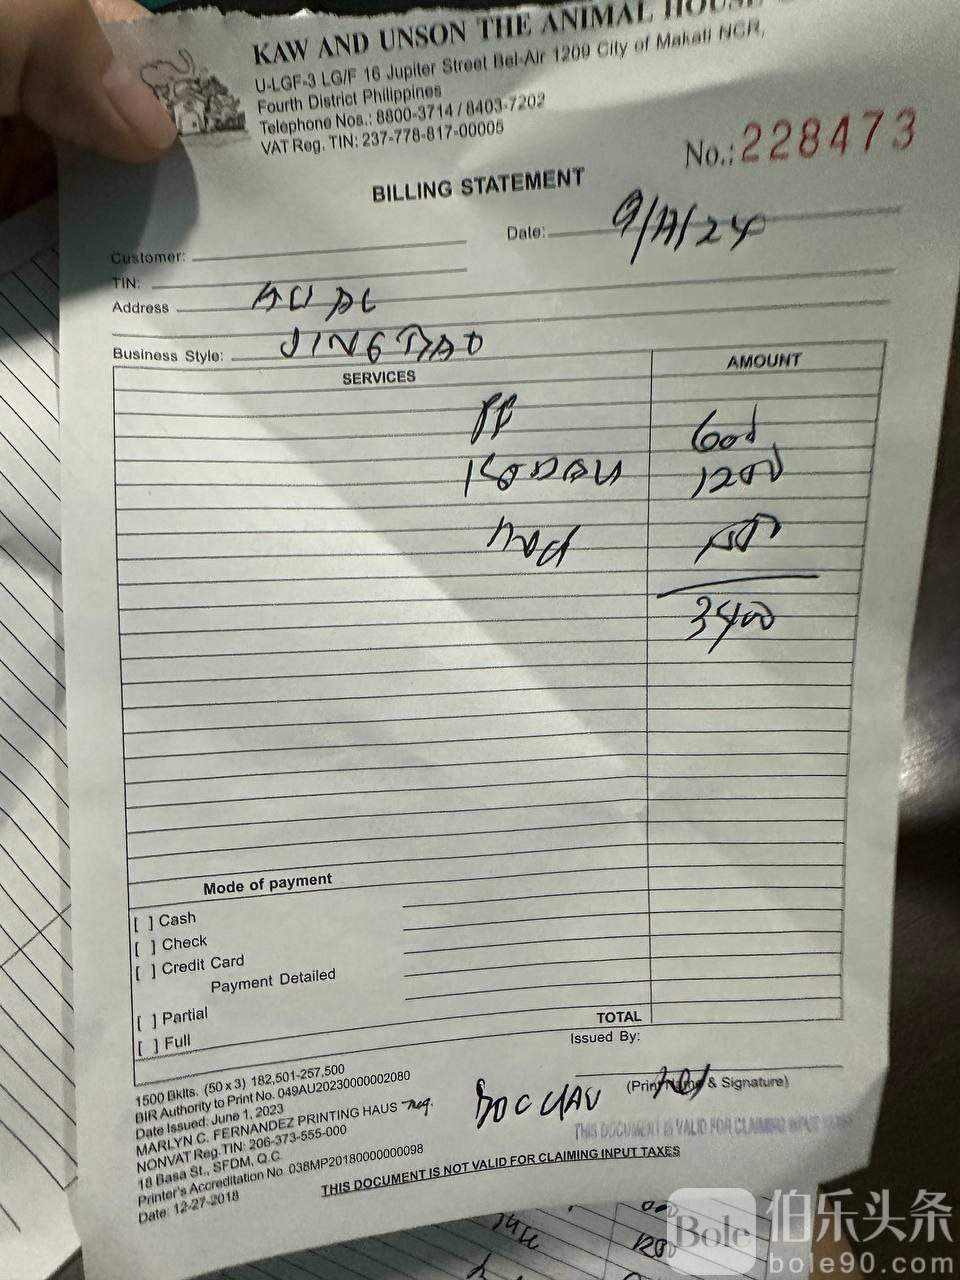 KAW AND UNSON THE ANIMAL HOUSE
U-LGF-3 LG/F 16 Jupiter Street Bel-Air 1209 City of Makati NCR,
Fourth District Philippines
Telephone Nos.: 8800-3714 / 8403-7202
VAT Reg. TIN: 237-778-817-00005
No.: 228473
BILLING STATEMENT
Date:
Customer:
TIN:
Address
Business Style: JINGBAO
SERVICES AMOUNT
600
1200
3400
Mode of payment
[ ] Cash
[ ] Check
[ ] Credit Card
Payment Detailed
[ ] Partial
[ ] Full
TOTAL
Issued By:
(Print Name & Signature)
1500 Bklts. (50 x 3) 182,501-257,500
BIR Authority to Print No. 049AU20230000002080
Date Issued: June 1, 2023
MARLYN C. FERNANDEZ PRINTING HAUS
NONVAT Reg. TIN: 206-373-555-000
18 Basa St., SFDM, Q.C.
Printer's Accreditation No. 038MP20180000000098
Date: 12-27-2018
THIS DOCUMENT IS VALID FOR CLAIMING INPUT
THIS DOCUMENT IS NOT VALID FOR CLAIMING INPUT TAXES
1200
Bole 伯乐头条
bole90.com